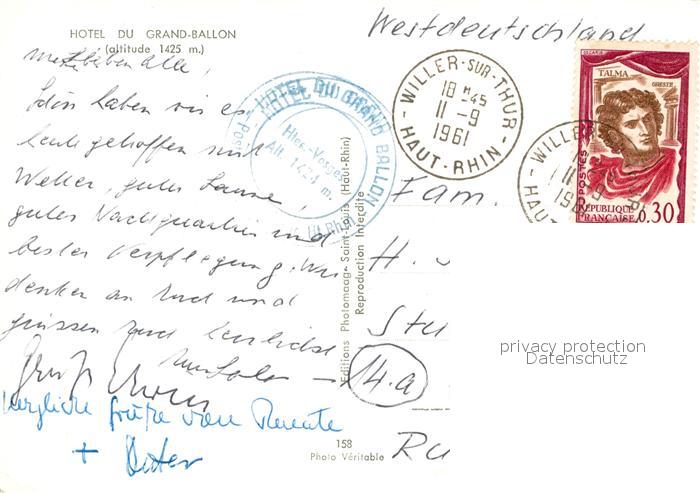 HOTEL DU GRAND-BALLON
(altitude 1425 m.)
Westdeutschland
alle,
haben wir es
getroffen mit
Wetter, gute Laune,
gutes Nachtquartier und
bester Verpflegung. Wir
denken an Euch und
grüssen Euch herzlichst
Herzliche Grüße von Renate
+ Dieter
HOTEL DU GRAND BALLON
Poste
Htes-Vosges
Alt. 1424 m.
Ht Rhin
WILLER-SUR-THUR
18 H 45
11 - 9
1961
HAUT-RHIN
TALMA
ORESTE
POSTES
RÉPUBLIQUE
FRANÇAISE
0,30
WILLE
11 - 9
HAUT
Editions Photomaag - Saint-Louis (Haut-Rhin)
Reproduction Interdite
Fam.
H.
Stu
14.a
Ru
158
Photo Véritable
privacy protection
Datenschutz